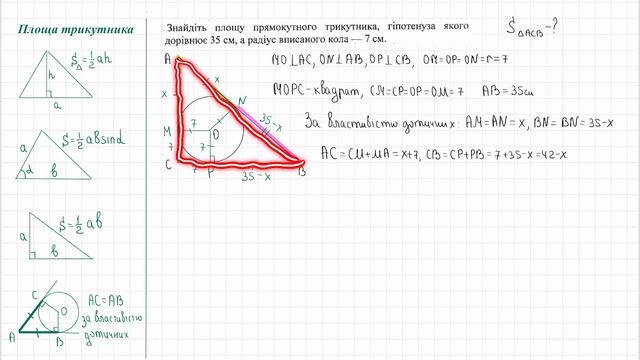 Площа трикутника
S△ = 1/2 ah
h
a
S = 1/2 ab sinα
a
α
b
S = 1/2 ab
a
b
AC = AB
за властивістю
дотичних
C
O
A
B
Знайдіть площу прямокутного трикутника, гіпотенуза якого
дорівнює 35 см, а радіус вписаного кола — 7 см.
S△ACB - ?
MO⊥AC, ON⊥AB, OP⊥CB, OM=OP=ON=r=7
MOPC - квадрат, CM=CP=OP=OM=7 AB=35см
За властивістю дотичних: AM=AN=x, BN=BN=35-x
AC=CM+MA=x+7, CB=CP+PB=7+35-x=42-x
A
x
x
N
35-x
M
7
O
7
7
C
7
P
35-x
B